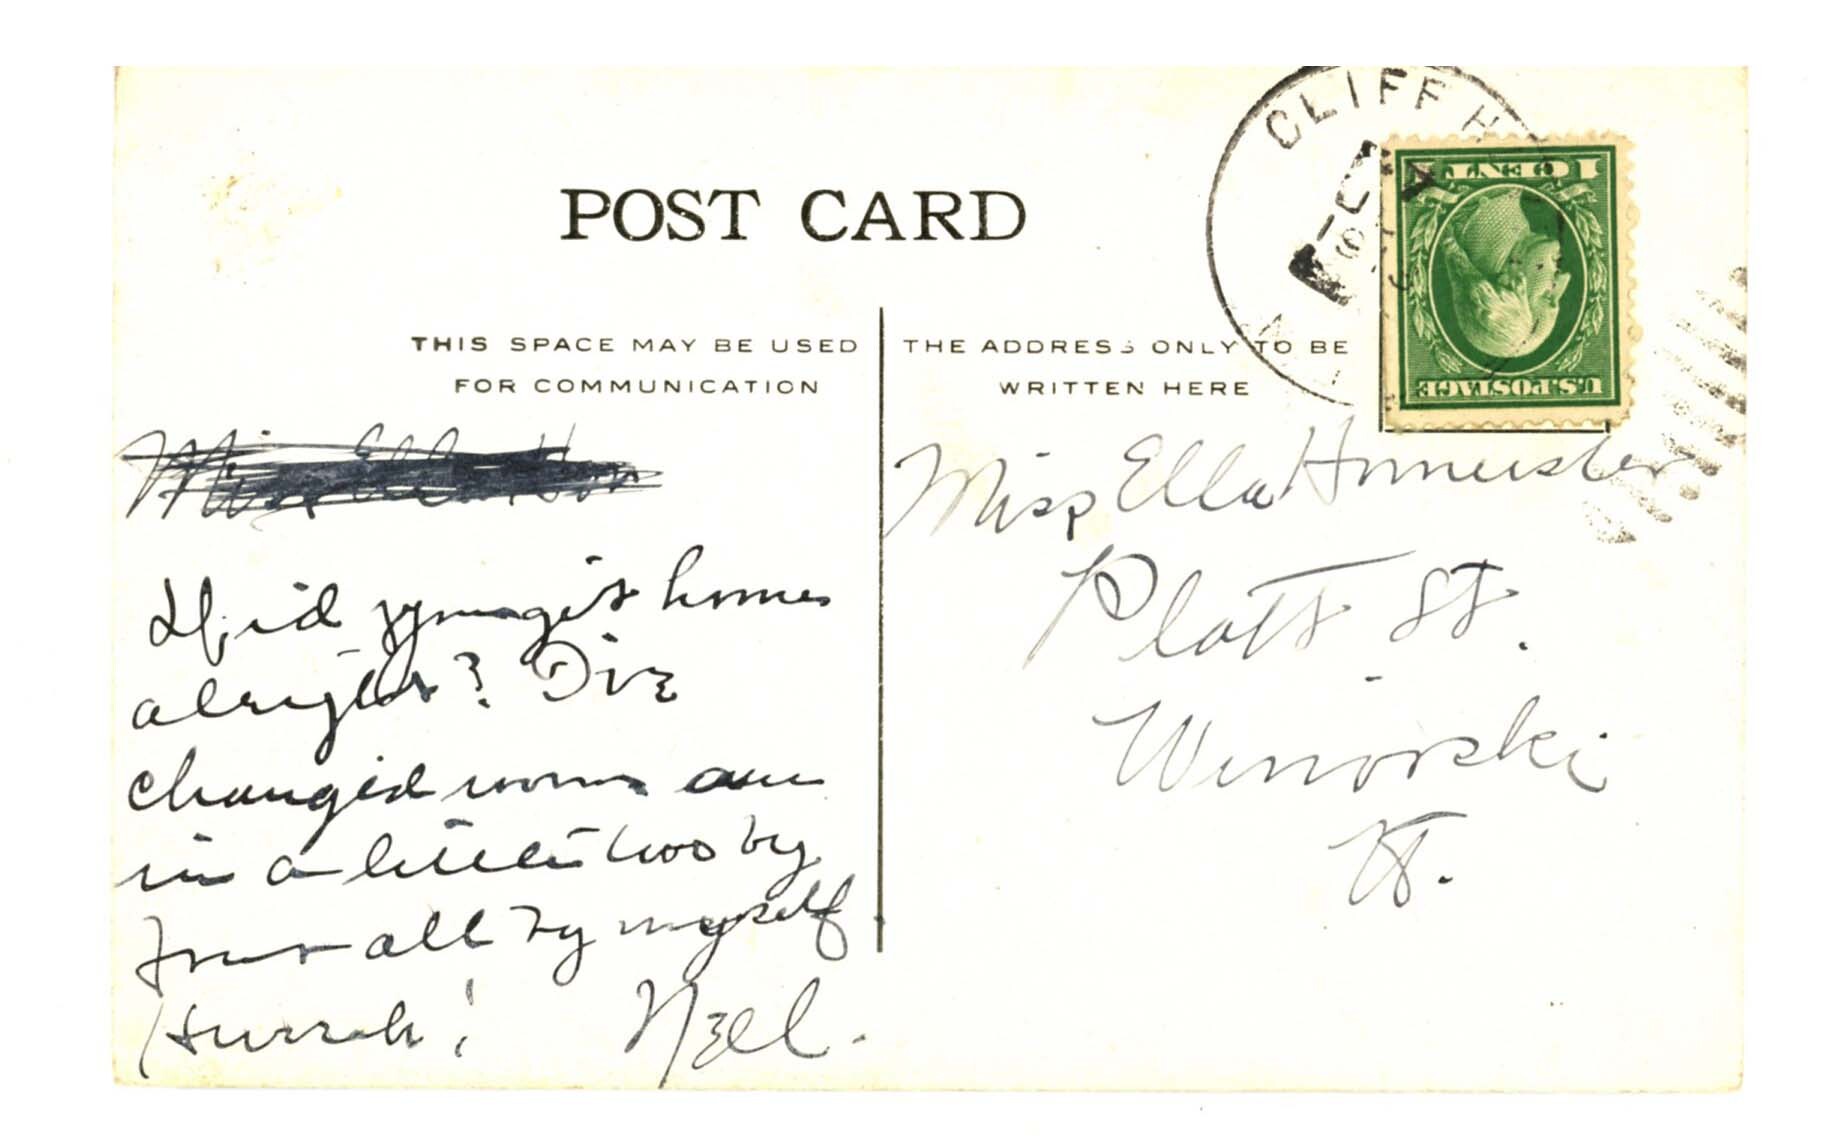 POST CARD
THIS SPACE MAY BE USED
FOR COMMUNICATION
Miss Ella Hor
Did you get home
alright? I've
changed rooms am
in a little two by
four all by myself
Hurrah! Nell.
THE ADDRESS ONLY TO BE
WRITTEN HERE
Miss Ella
Platt St.
Winooski
Vt.
CLIFF H
1 CENT 1
U.S. POSTAGE